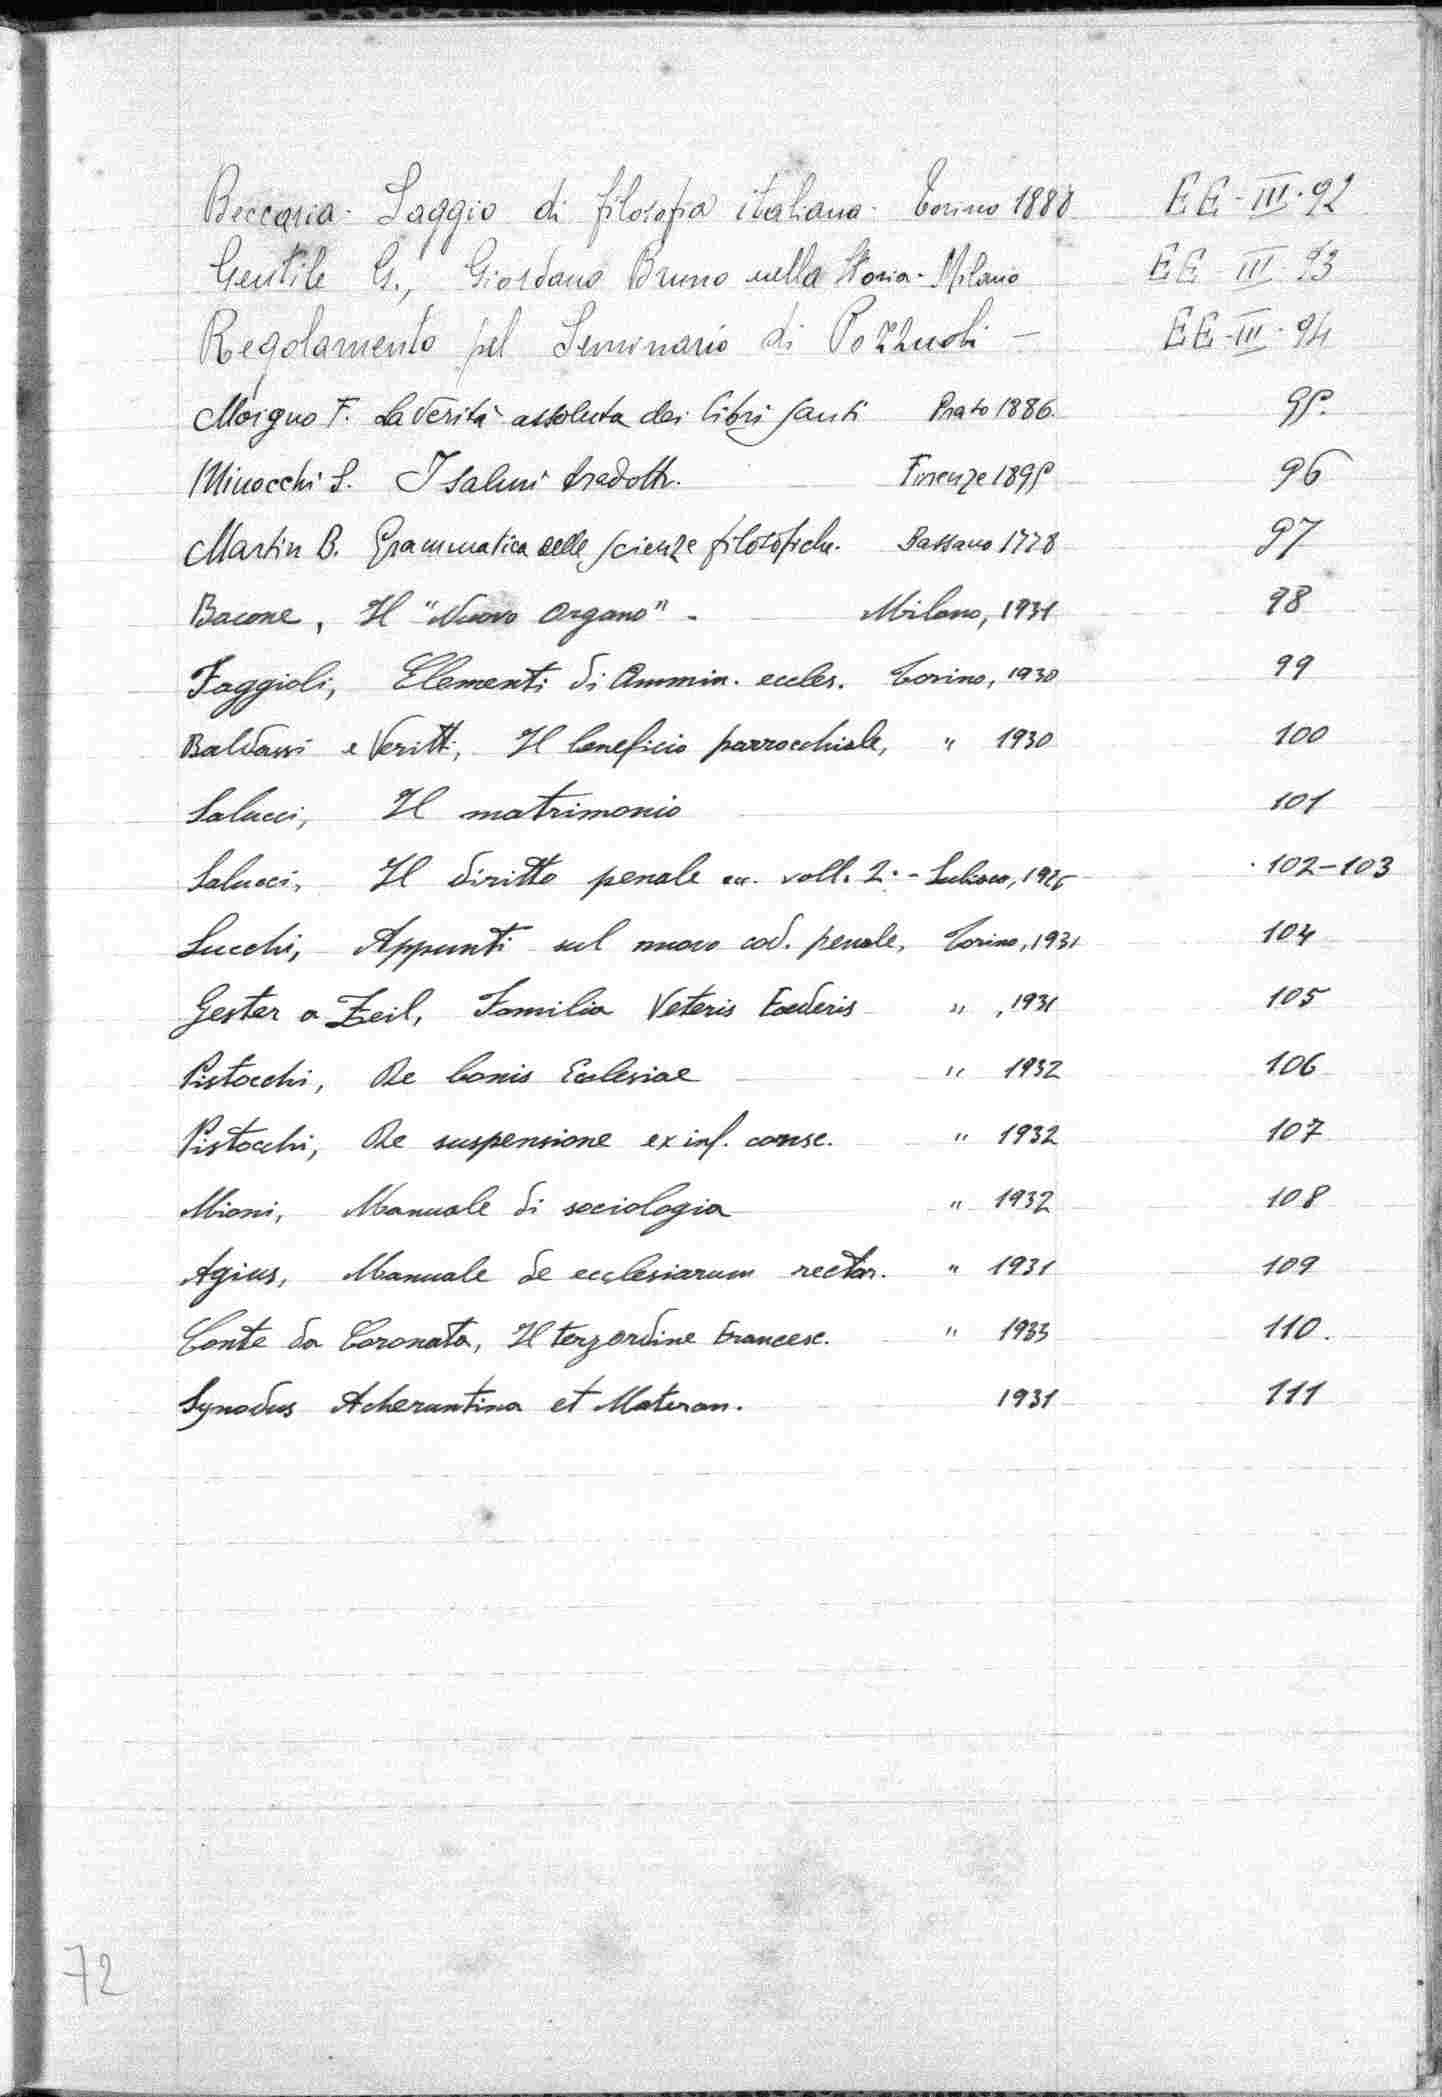 Beccaria. Saggio di filosofia italiana. Torino 1888 EE-III-92
Gentile G., Giordano Bruno nella Storia - Milano EE-III-93
Regolamento pel Seminario di Pozzuoli - EE-III-94
Moigno F. La verità assoluta dei libri santi Prato 1886. 95.
Minocchi S. I salmi tradotti. Firenze 1895 96
Martin B. Grammatica delle scienze filosofiche. Bassano 1778 97
Bacone, Il "Nuovo Organo" - Milano, 1931 98
Faggioli, Elementi di Ammin. eccles. Torino, 1930 99
Baldassi e Veritti, Il beneficio parrocchiale, " 1930 100
Salucci, Il matrimonio 101
Salucci, Il diritto penale ecc. voll. 2. - Subiaco, 102-103
Lucchi, Appunti sul nuovo cod. penale, Torino, 1931 104
Gester a Zeil, Familia Veteris Foederis " , 1931 105
Pistocchi, De bonis Ecclesiae " 1932 106
Pistocchi, De suspensione ex inf. consc. " 1932 107
Mioni, Manuale di sociologia " 1932 108
Agius, Manuale de ecclesiarum rector. " 1931 109
Conte da Coronata, Il terz'ordine Francesc. " 1933 110.
Synodus Acheruntina et Materan. 1931 111
72